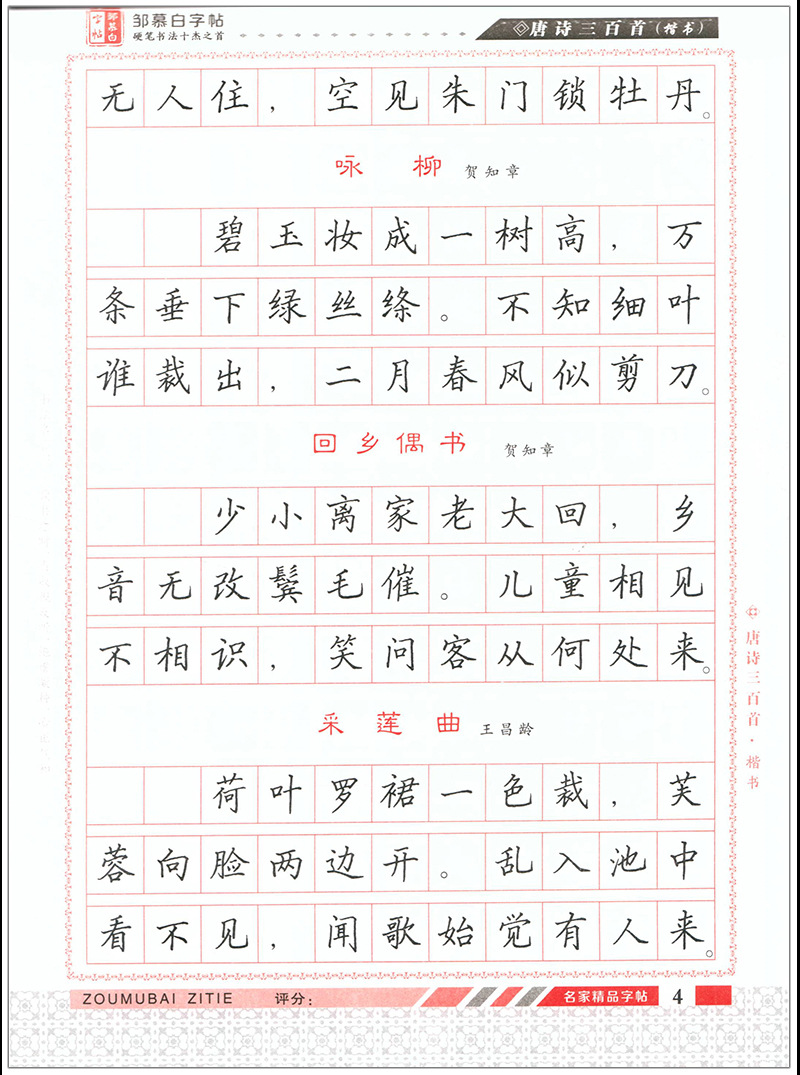 邹慕白字帖
邹慕白字帖
硬笔书法十杰之首
唐诗三百首(楷书)
无人住，空见朱门锁牡丹。
咏柳 贺知章
碧玉妆成一树高，万
条垂下绿丝绦。不知细叶
谁裁出，二月春风似剪刀。
回乡偶书 贺知章
少小离家老大回，乡
音无改鬓毛催。儿童相见
不相识，笑问客从何处来。
采莲曲 王昌龄
荷叶罗裙一色裁，芙
蓉向脸两边开。乱入池中
看不见，闻歌始觉有人来。
唐诗三百首·楷书
ZOUMUBAI ZITIE 评分： 名家精品字帖 4